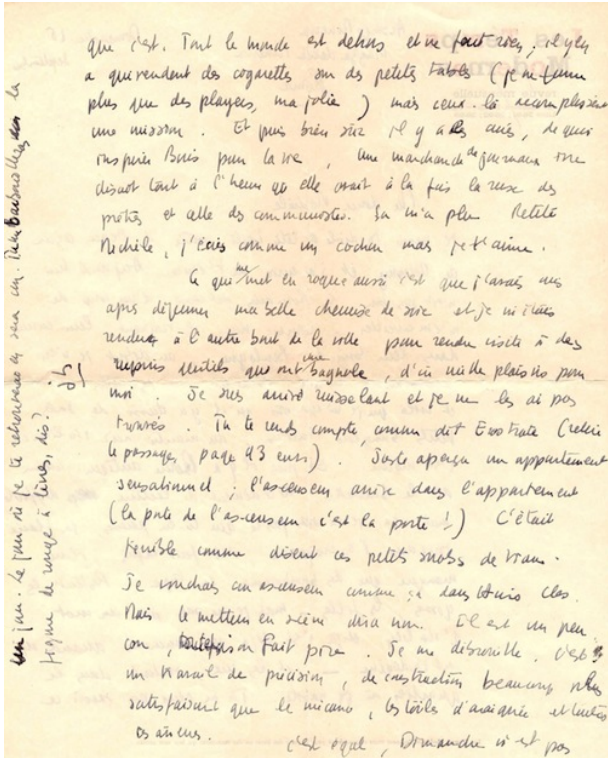 que c'est. Tout le monde est dehors et ne fait rien, il y en
a qui vendent des cigarettes sur des petites tables (je ne fume
plus que des players, ma jolie) mais ceux-là accomplissent
une mission. Et puis bien sûr il y a les , de quoi
Boris pour la vie, une marchande de journaux me
disait tout à l'heure qu'elle avait à la fois la ruse des
prêtres et celle des communistes. Ça m'a plu. Petite
Michèle, j'écris comme un cochon mais je t'aime.
Ce qui me met en rogne aussi c'est que j'avais mis
après déjeuner ma belle chemise de soie et je m'étais
rendu à l'autre bout de la ville pour rendre visite à des
gentils qui ont une bagnole, d'où mille plaisirs pour
moi. Je suis arrivé ruisselant et je ne les ai pas
trouvés. Tu te rends compte, comme dit Erostrate (relire
le passage, page 93 ). Juste aperçu un appartement
sensationnel ; l'ascenseur arrive dans l'appartement
(la porte de l'ascenseur c'est la porte !) C'était
terrible comme disent ces petits snobs de
Je voudrais un ascenseur comme ça dans Huis Clos.
Mais le metteur en scène dira non. Il est un peu
con fait pire. Je me débrouille, c'est
un travail de précision, de construction beaucoup plus
satisfaisant que le mécano, les toiles d'araignée et
C'est égal, Dimanche n'est pas
un jour. Le jour où je te retrouverai en sera un. la
figure de rouge à lèvres, dis?